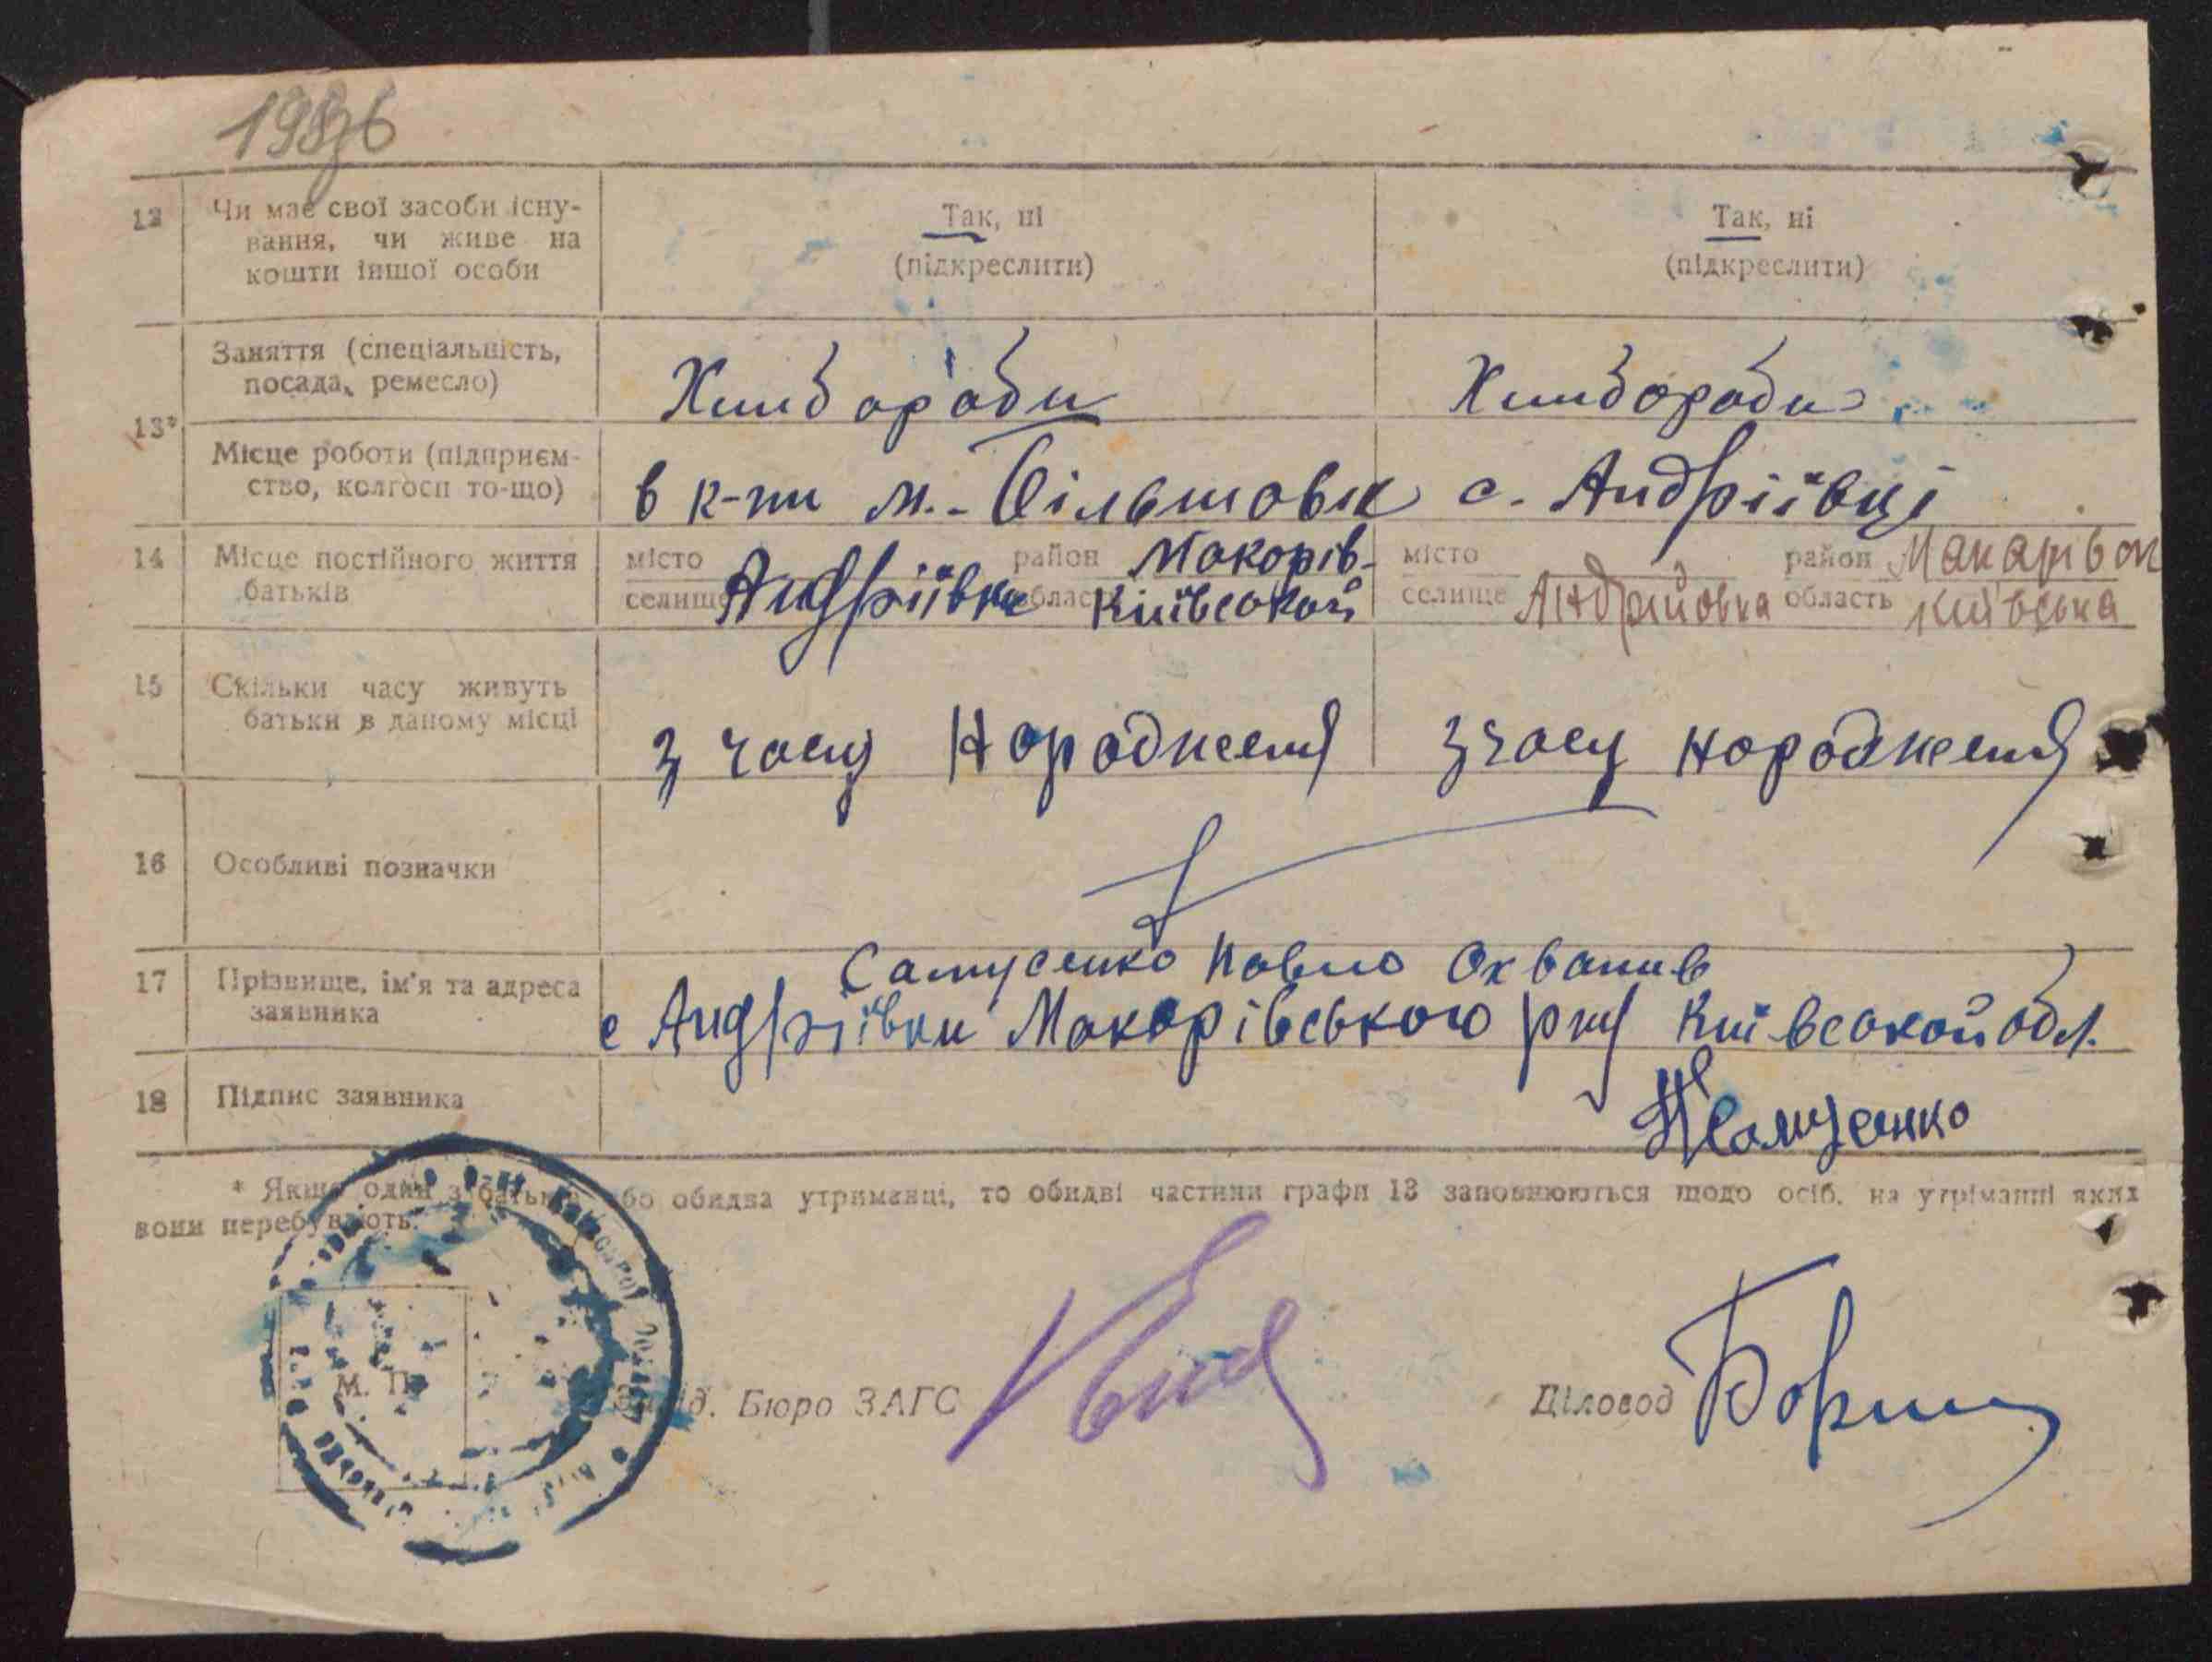 12 Чи має свої засоби існу-
вання, чи живе на
кошти іншої особи
Так, ні
(підкреслити)
Так, ні
(підкреслити)
13*
Заняття (спеціальність,
посада, ремесло)
Хлібороби
Хлібороби
Місце роботи (підприєм-
ство, колгосп то-що)
в к-пи м. с. Андріївці
14 Місце постійного життя
батьків
місто
селище Андріївка
район Макорів-
область Київсокой
місто
селище Андрийовка
район Макарівск
область Київська
15 Скільки часу живуть
батьки в даному місці
з часу Нородження
з часу нородження
16 Особливі позначки
17 Прізвище, ім'я та адреса
заявника
Самусенко Павло
с Андріївки Макорівською рну Київсокой обл.
18 Підпис заявника
Самусенко
* Якщо один з батьків або обидва утриманці, то обидві частини графи 13 заповнюються щодо осіб, на утріманні яких
вони перебувають.
М. П.
Зав. від. Бюро ЗАГС
Діловод